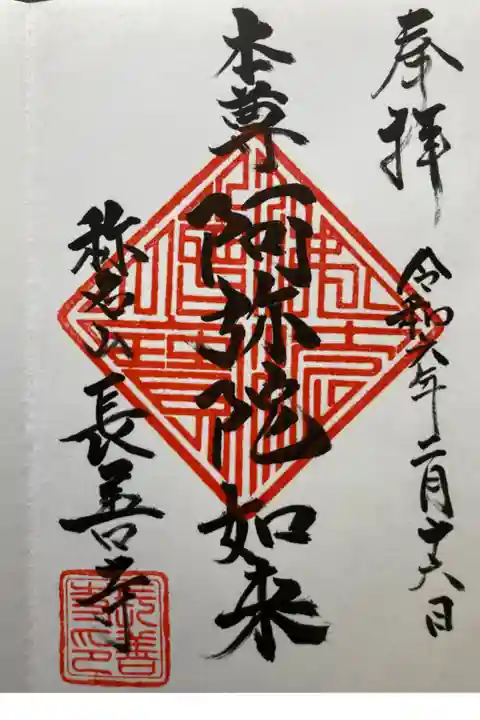 奉拝
令和六年二月十六日
本尊
阿弥陀如来
称名山
長善寺